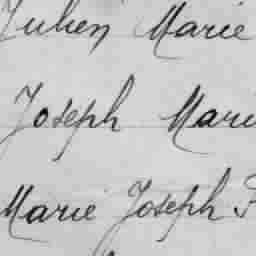 Julien Marie
Joseph Mari
Marie Joseph